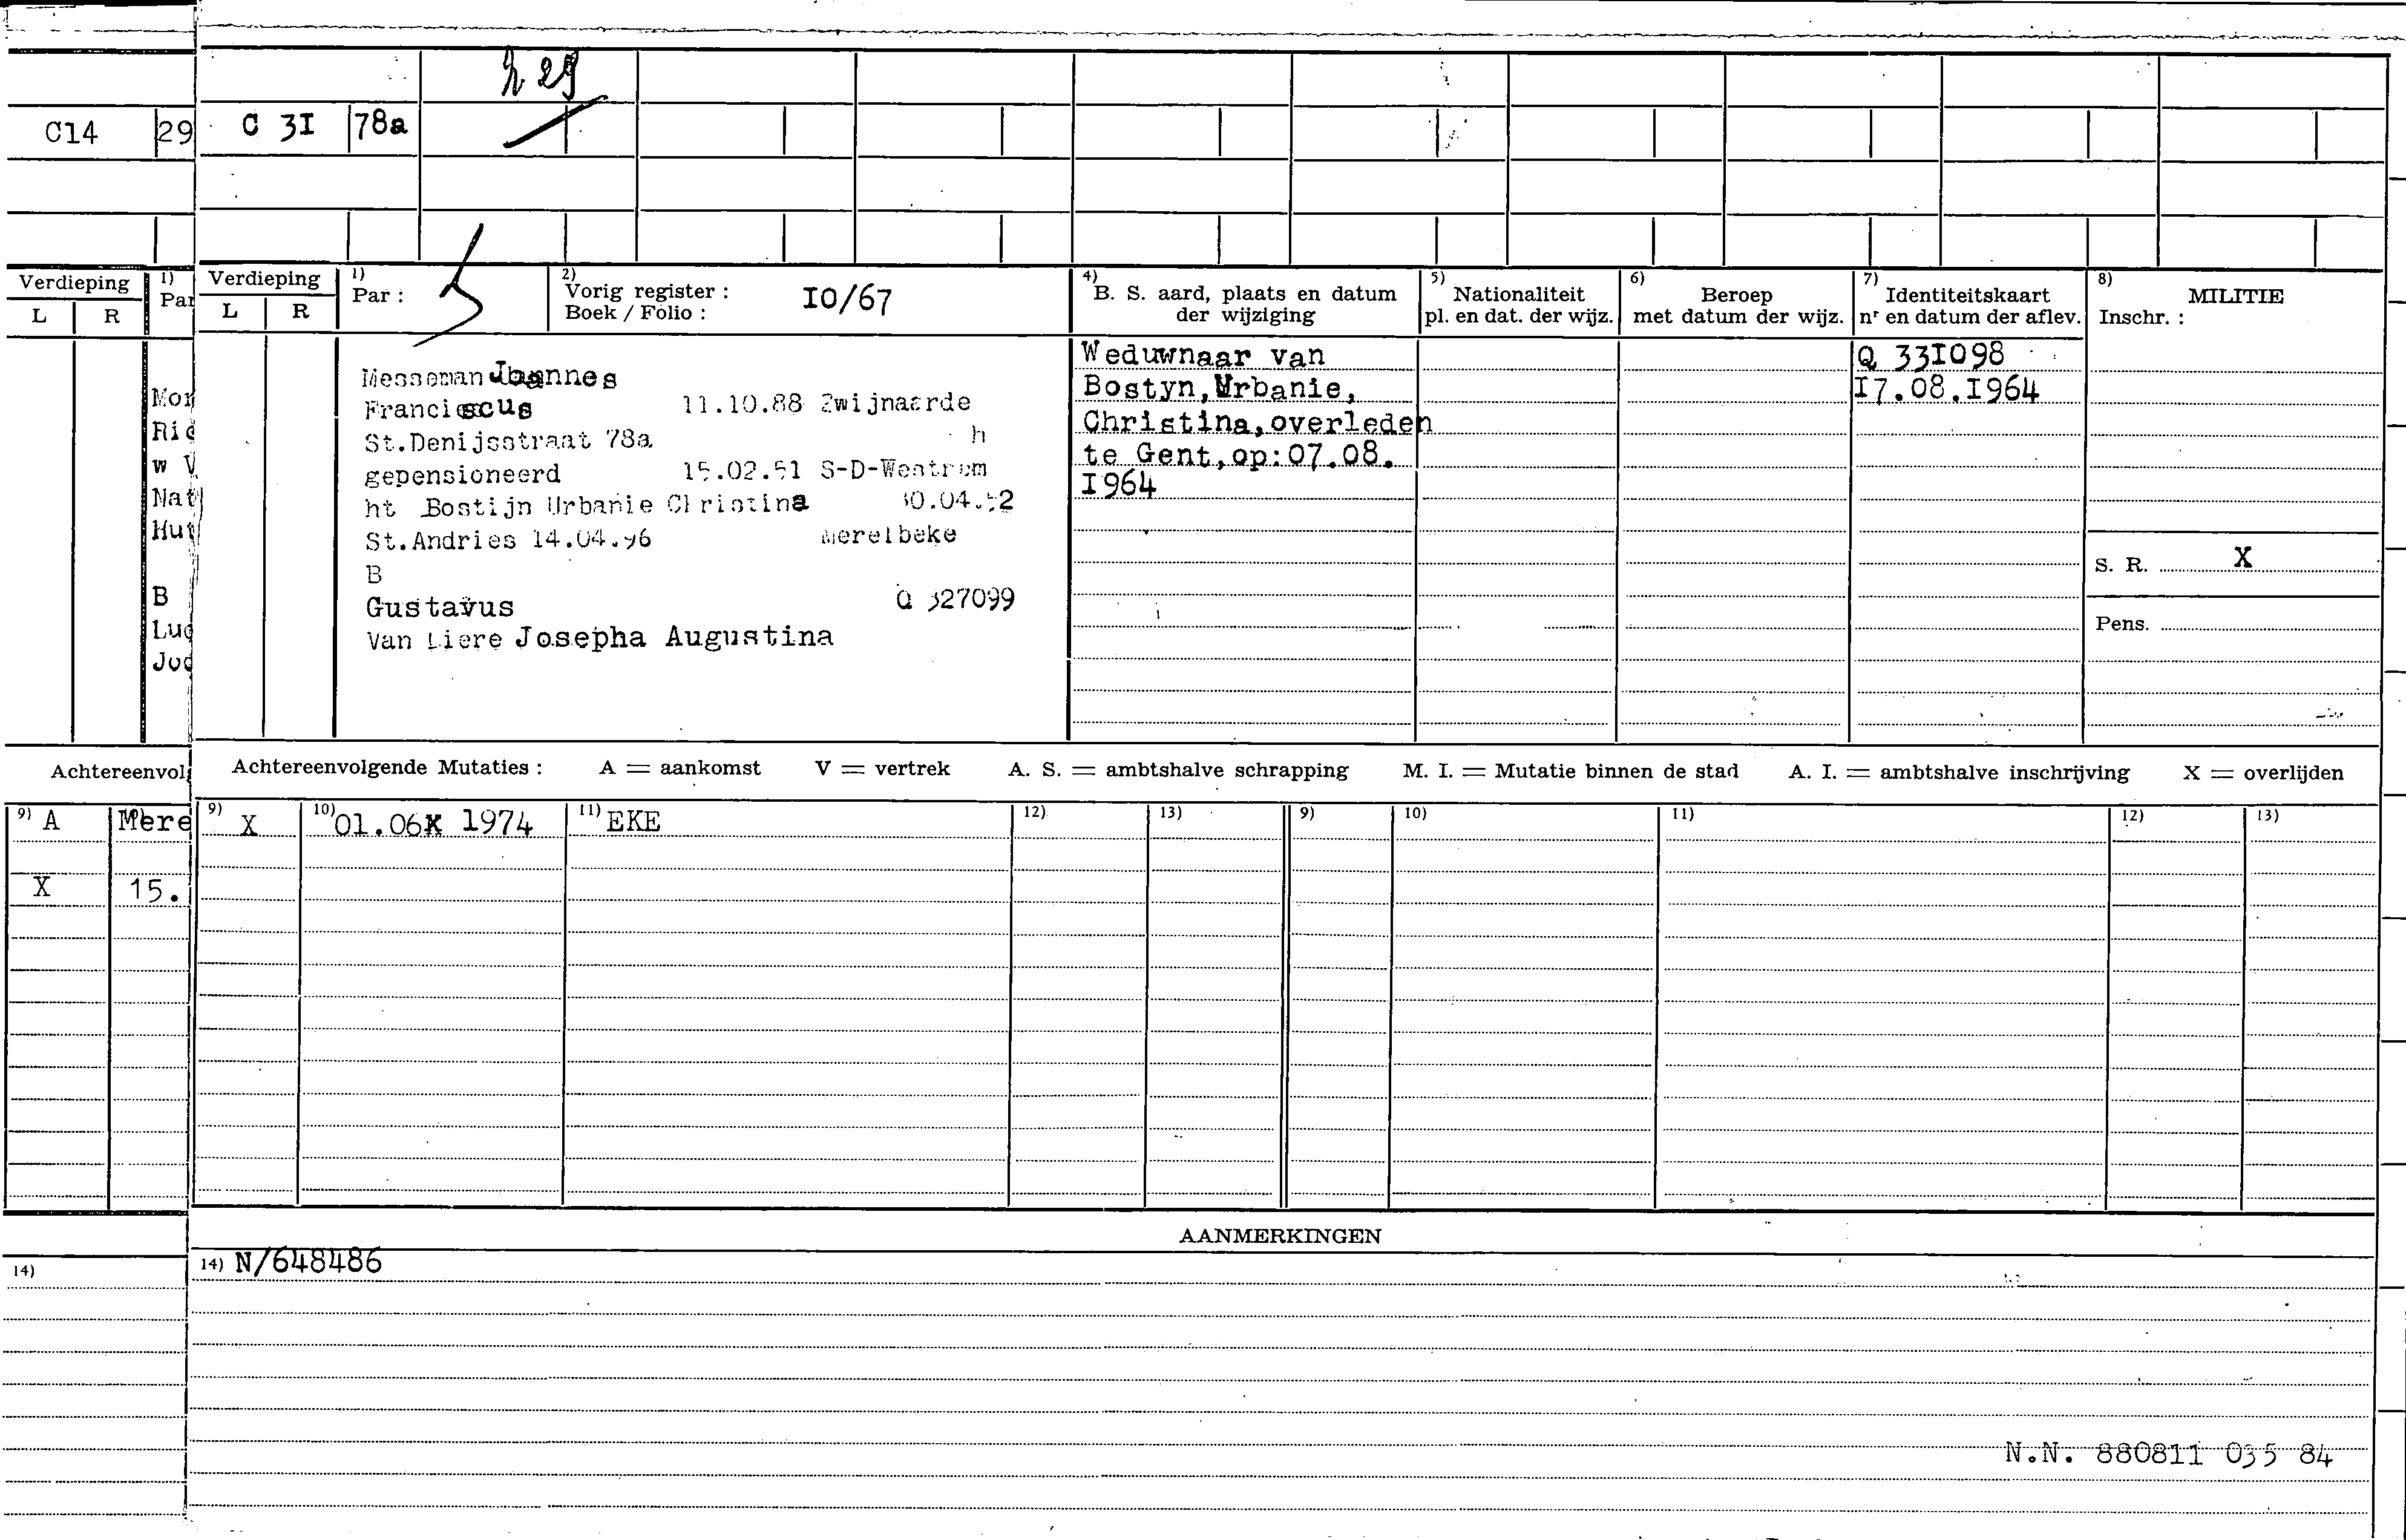 C14 29 C 3I 78a
29
Verdieping 1) Par
L R
Verdieping 1) Par :
L R
2) Vorig register : IO/67
Boek / Folio :
4) B. S. aard, plaats en datum
der wijziging
5) Nationaliteit
pl. en dat. der wijz.
6) Beroep
met datum der wijz.
7) Identiteitskaart
nr en datum der aflev.
8) MILITIE
Inschr. :
Mor
Rid
w V
Nat
Hut
B
Luc
Messeman Joannes
Franciscus 11.10.88 Zwijnaarde
St.Denijsstraat 78a h
gepensioneerd 15.02.51 S-D-Westrem
ht Bostijn Urbanie Christina 30.04.52
St.Andries 14.04.96 Merelbeke
B
Gustavus Q 327099
Van Liere Josepha Augustina
Weduwnaar van
Bostyn,Urbanie,
Christina,overleden
te Gent,op:07.08.
I964
Q 33I098
I7.08.I964
S. R. X
Pens.
Achtereenvol
Achtereenvolgende Mutaties : A = aankomst V = vertrek A. S. = ambtshalve schrapping M. I. = Mutatie binnen de stad A. I. = ambtshalve inschrijving X = overlijden
9) A Mere
X 15.
9) X 10) 01.06 1974 11) EKE 12) 13) 9) 10) 11) 12) 13)
AANMERKINGEN
14)
14) N/648486
N.N. 880811 035 84